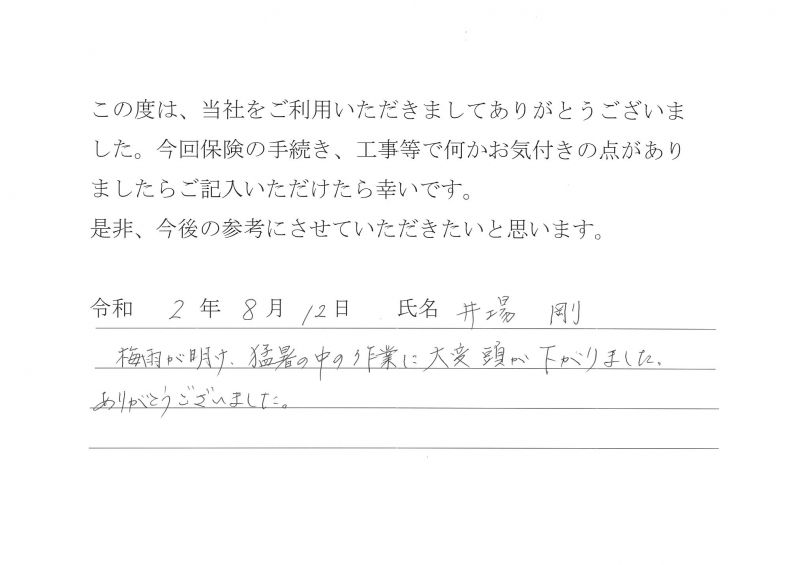 この度は、当社をご利用いただきましてありがとうございま
した。今回保険の手続き、工事等で何かお気付きの点があり
ましたらご記入いただけたら幸いです。
是非、今後の参考にさせていただきたいと思います。
令和 2 年 8 月 12 日 氏名 井場 剛
梅雨が明け、猛暑の中の作業に大変頭が下がりました。
ありがとうございました。